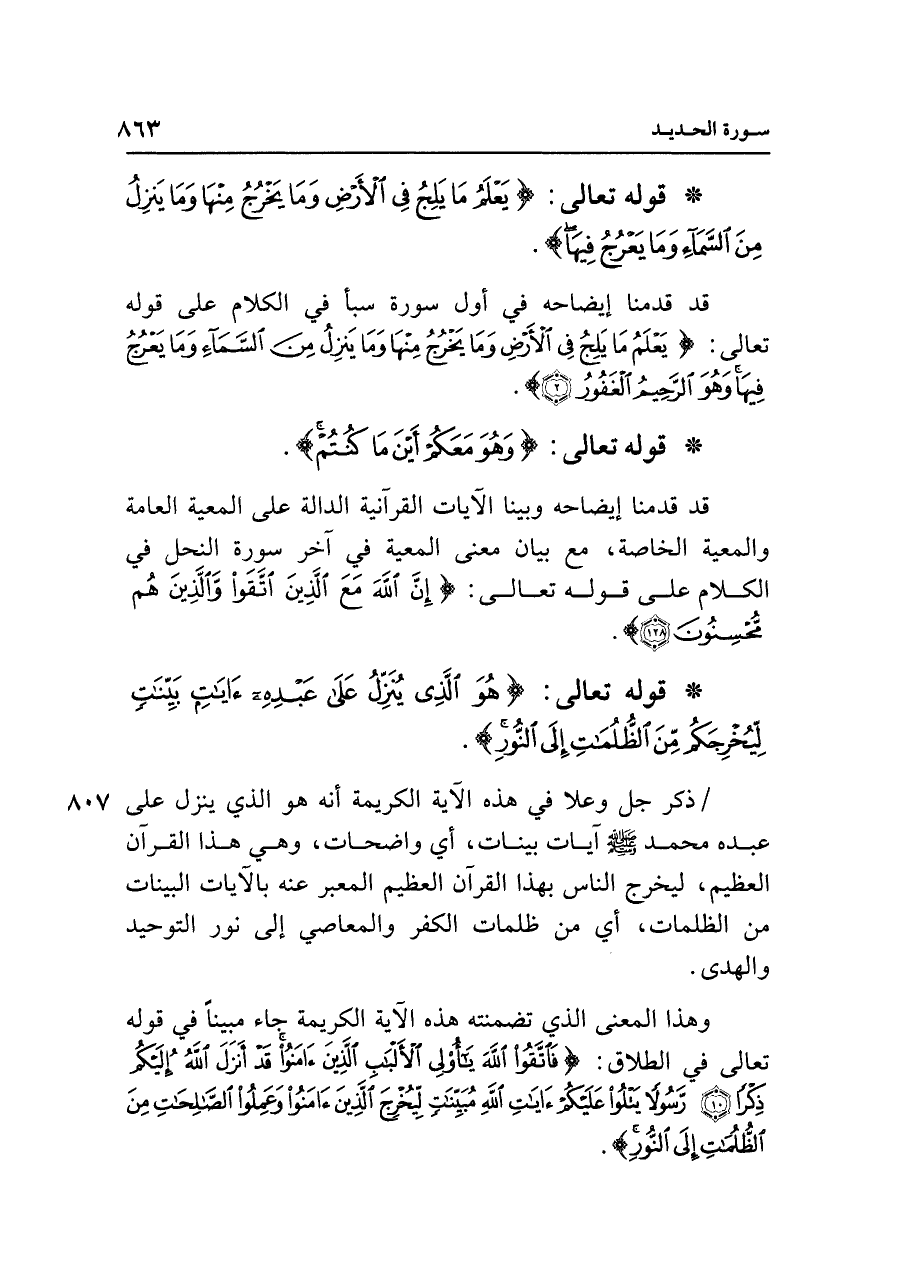 سورة الحديد ٨٦٣
* قوله تعالى: ﴿ يَعْلَمُ مَا يَلِجُ فِى ٱلْأَرْضِ وَمَا يَخْرُجُ مِنْهَا وَمَا يَنزِلُ
مِنَ ٱلسَّمَآءِ وَمَا يَعْرُجُ فِيهَاۖ﴾.
قد قدمنا إيضاحه في أول سورة سبأ في الكلام على قوله
تعالى: ﴿ يَعْلَمُ مَا يَلِجُ فِى ٱلْأَرْضِ وَمَا يَخْرُجُ مِنْهَا وَمَا يَنزِلُ مِنَ ٱلسَّمَآءِ وَمَا يَعْرُجُ
فِيهَاۚ وَهُوَ ٱلرَّحِيمُ ٱلْغَفُورُ ٢﴾.
* قوله تعالى: ﴿ وَهُوَ مَعَكُمْ أَيْنَ مَا كُنتُمْۚ﴾.
قد قدمنا إيضاحه وبينا الآيات القرآنية الدالة على المعية العامة
والمعية الخاصة، مع بيان معنى المعية في آخر سورة النحل في
الكلام على قوله تعالى: ﴿ إِنَّ ٱللَّهَ مَعَ ٱلَّذِينَ ٱتَّقَوا۟ وَّٱلَّذِينَ هُم
مُّحْسِنُونَ ١٢٨﴾.
* قوله تعالى: ﴿ هُوَ ٱلَّذِى يُنَزِّلُ عَلَىٰ عَبْدِهِۦٓ ءَايَـٰتٍۭ بَيِّنَـٰتٍ
لِّيُخْرِجَكُم مِّنَ ٱلظُّلُمَـٰتِ إِلَى ٱلنُّورِۚ﴾.
/ ذكر جل وعلا في هذه الآية الكريمة أنه هو الذي ينزل على ٨٠٧
عبده محمد ﷺ آيات بينات، أي واضحات، وهي هذا القرآن
العظيم، ليخرج الناس بهذا القرآن العظيم المعبر عنه بالآيات البينات
من الظلمات، أي من ظلمات الكفر والمعاصي إلى نور التوحيد
والهدى.
وهذا المعنى الذي تضمنته هذه الآية الكريمة جاء مبيناً في قوله
تعالى في الطلاق: ﴿ فَٱتَّقُوا۟ ٱللَّهَ يَـٰٓأُو۟لِى ٱلْأَلْبَـٰبِ ٱلَّذِينَ ءَامَنُوا۟ۚ قَدْ أَنزَلَ ٱللَّهُ إِلَيْكُمْ
ذِكْرًا ١٠ رَّسُولًا يَتْلُوا۟ عَلَيْكُمْ ءَايَـٰتِ ٱللَّهِ مُبَيِّنَـٰتٍ لِّيُخْرِجَ ٱلَّذِينَ ءَامَنُوا۟ وَعَمِلُوا۟ ٱلصَّـٰلِحَـٰتِ مِنَ
ٱلظُّلُمَـٰتِ إِلَى ٱلنُّورِۚ﴾.